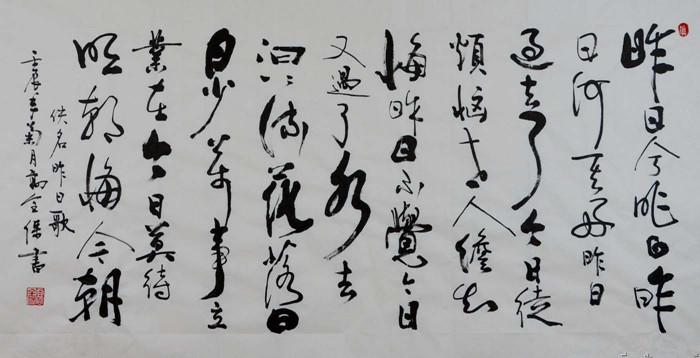 昨日兮昨日昨
日何其好昨日
過去了今日徒
煩惱世人知
悔昨日不覺今日
又過了水去
汩汩流花落日
日少萬事立
業在今日莫待
明朝悔今朝
佚名昨日歌
壬辰年菊月高全保書